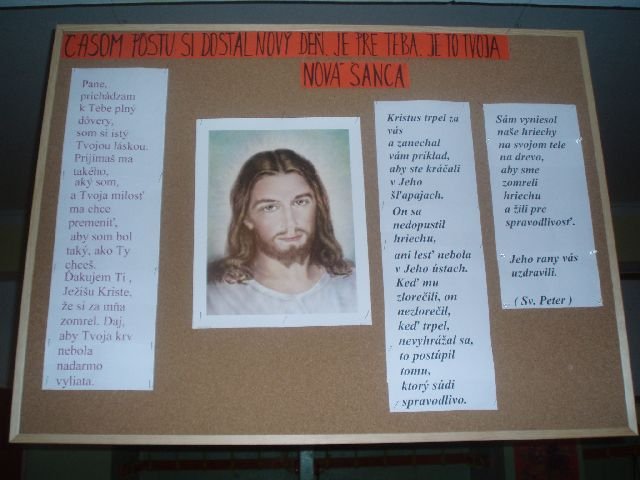 ČASOM PÔSTU SI DOSTAL NOVÝ DEŇ. JE PRE TEBA. JE TO TVOJA
NOVÁ ŠANCA
Pane,
prichádzam
k Tebe plný
dôvery,
som si istý
Tvojou láskou.
Prijímaš ma
takého,
aký som,
a Tvoja milosť
ma chce
premeniť,
aby som bol
taký, ako Ty
chceš.
Ďakujem Ti ,
Ježišu Kriste,
že si za mňa
zomrel. Daj,
aby Tvoja krv
nebola
nadarmo
vyliata.
Kristus trpel za
vás
a zanechal
vám príklad,
aby ste kráčali
v Jeho
šľapajach.
On sa
nedopustil
hriechu,
ani lesť nebola
v Jeho ústach.
Keď mu
zlorečili, on
nezlorečil,
keď trpel,
nevyhrážal sa,
to postúpil
tomu,
ktorý súdi
spravodlivo.
Sám vyniesol
naše hriechy
na svojom tele
na drevo,
aby sme
zomreli
hriechu
a žili pre
spravodlivosť.
Jeho rany vás
uzdravili.
( Sv. Peter )